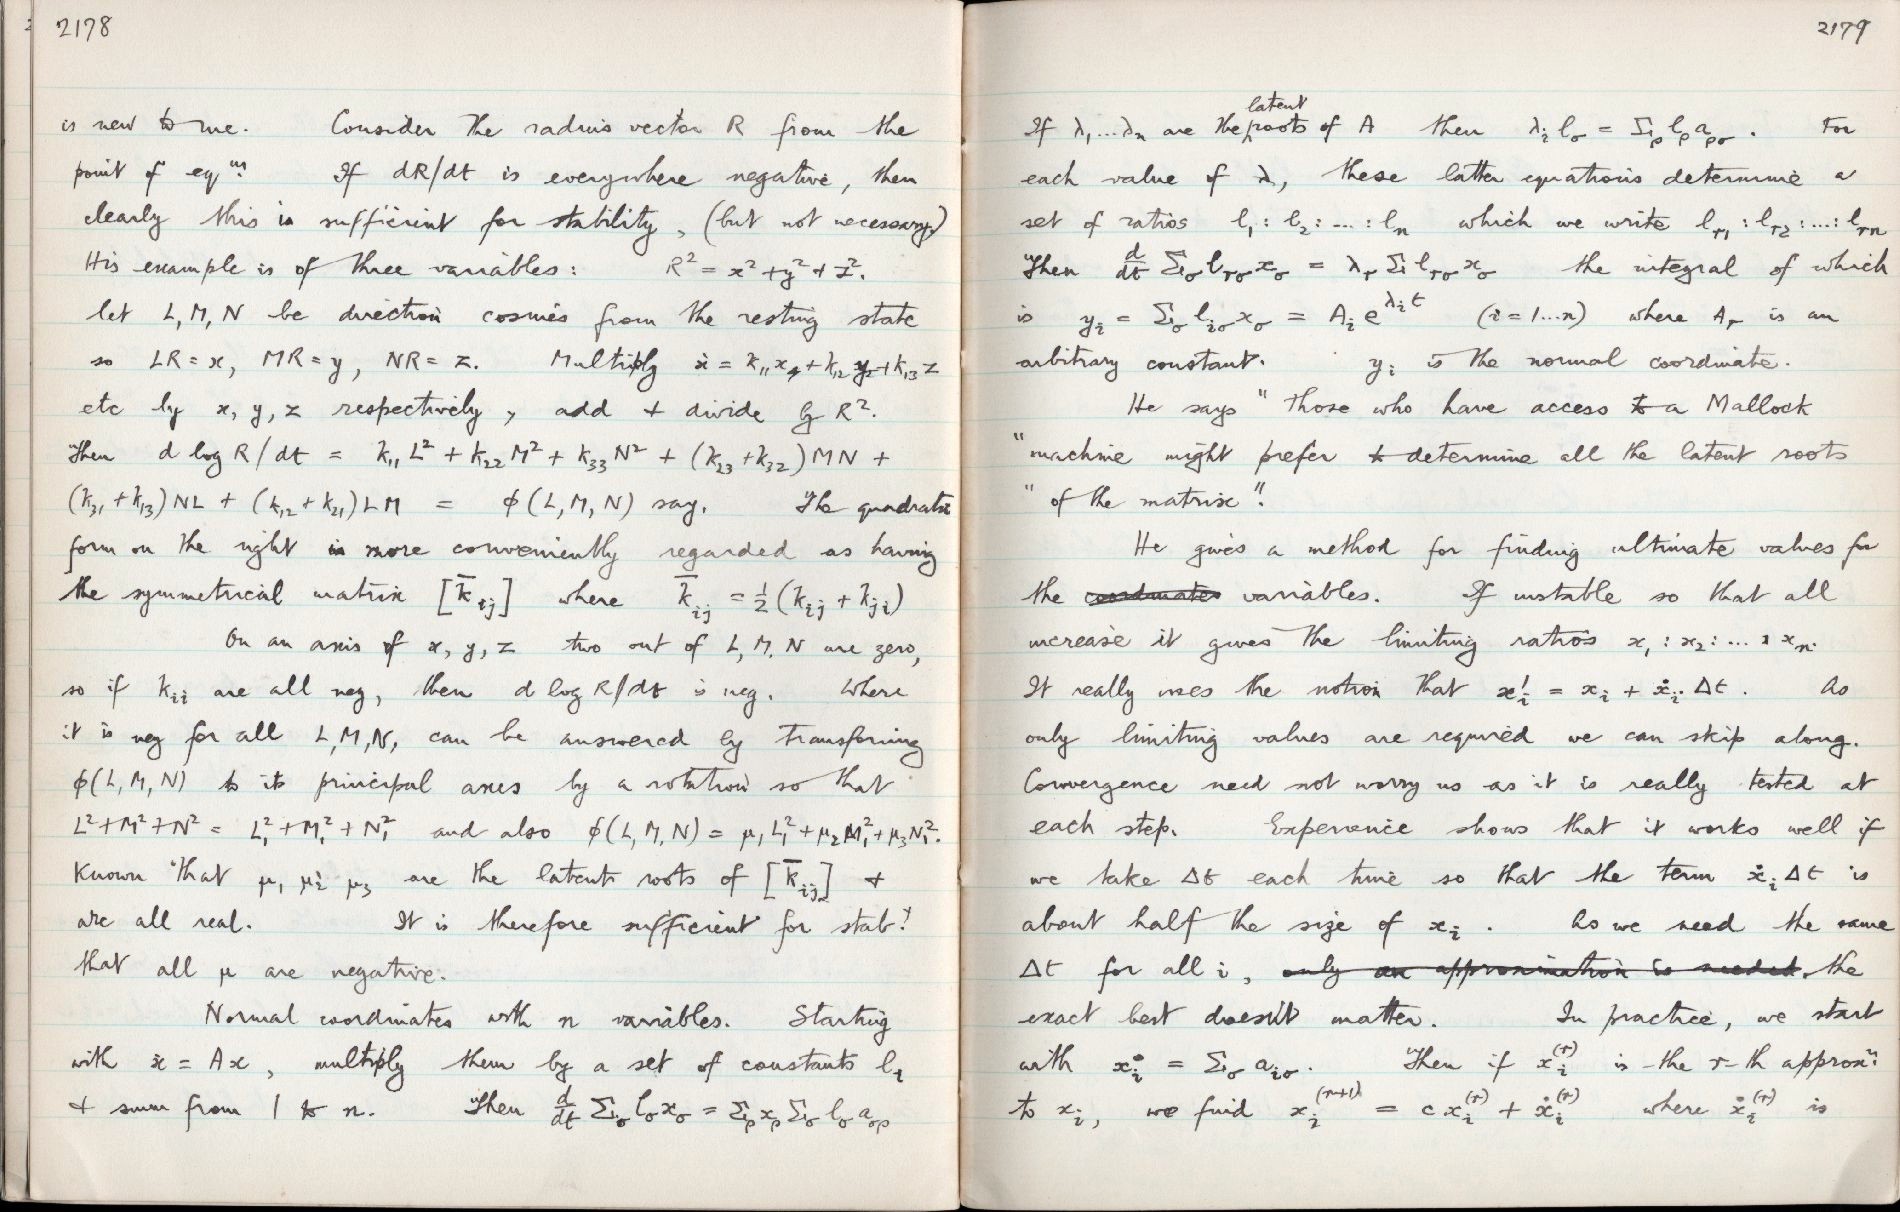 2178
is new to me. Consider the radius vector R from the
point of eqᵐ. If dR/dt is everywhere negative, then
clearly this is sufficient for stability, (but not necessary.)
His example is of three variables: R² = x² + y² + z².
let L, M, N be direction cosines from the resting state
so LR = x, MR = y, NR = z. Multiply ẋ = k₁₁x + k₁₂y + k₁₃z
etc by x, y, z respectively, add + divide by R².
Then d log R/dt = k₁₁L² + k₂₂M² + k₃₃N² + (k₂₃ + k₃₂)MN +
(k₃₁ + k₁₃)NL + (k₁₂ + k₂₁)LM = ϕ(L, M, N) say. The quadratic
form on the right is more conveniently regarded as having
the symmetrical matrix [k̄ᵢⱼ] where k̄ᵢⱼ = ½(kᵢⱼ + kⱼᵢ)
On an axis of x, y, z two out of L, M, N are zero,
so if kᵢᵢ are all neg, then d log R/dt is neg. Where
it is neg for all L, M, N, can be answered by transforming
ϕ(L, M, N) to its principal axes by a rotation so that
L² + M² + N² = L₁² + M₁² + N₁² and also ϕ(L, M, N) = μ₁L₁² + μ₂M₁² + μ₃N₁².
Known that μ₁ μ₂ μ₃ are the latent roots of [k̄ᵢⱼ] +
are all real. It is therefore sufficient for stab.ʸ
that all μ are negative.
Normal coordinates with n variables. Starting
with ẋ = Ax, multiply them by a set of constants lᵢ
+ sum from 1 to n. Then d/dt Σσ lσxσ = Σρ xρ Σσ lσ aσρ
2179
If λ₁...λₙ are the latent roots of A then λᵢlσ = Σρ lρaρσ. For
each value of λ, these latter equations determine a
set of ratios l₁ : l₂ : ... : lₙ which we write lᵣ₁ : lᵣ₂ : ... : lᵣₙ
Then d/dt Σσ lᵣσxσ = λᵣ Σ lᵣσxσ the integral of which
is yᵢ = Σσ lᵢσxσ = Aᵢe^λᵢt (i = 1...n) where Aᵣ is an
arbitrary constant. yᵢ is the normal coordinate.
He says "Those who have access to a Mallock
"machine might prefer to determine all the latent roots
"of the matrix".
He gives a method for finding ultimate values for
the coordinates variables. If unstable so that all
increase it gives the limiting ratios x₁ : x₂ : ... : xₙ.
It really uses the notion that xᵢ' = xᵢ + ẋᵢ.Δt. As
only limiting values are required we can skip along.
Convergence need not worry us as it is really tested at
each step. Experience shows that it works well if
we take Δt each time so that the term ẋᵢΔt is
about half the size of xᵢ. As we need the same
Δt for all i, only an approximation is needed, the
exact best doesn't matter. In practice, we start
with ẋᵢ = Σσ aᵢσ. Then if xᵢ⁽ʳ⁾ is the r-th approxⁿ.
to xᵢ, we find xᵢ⁽ʳ⁺¹⁾ = c xᵢ⁽ʳ⁾ + ẋᵢ⁽ʳ⁾ where ẋᵢ⁽ʳ⁾ is